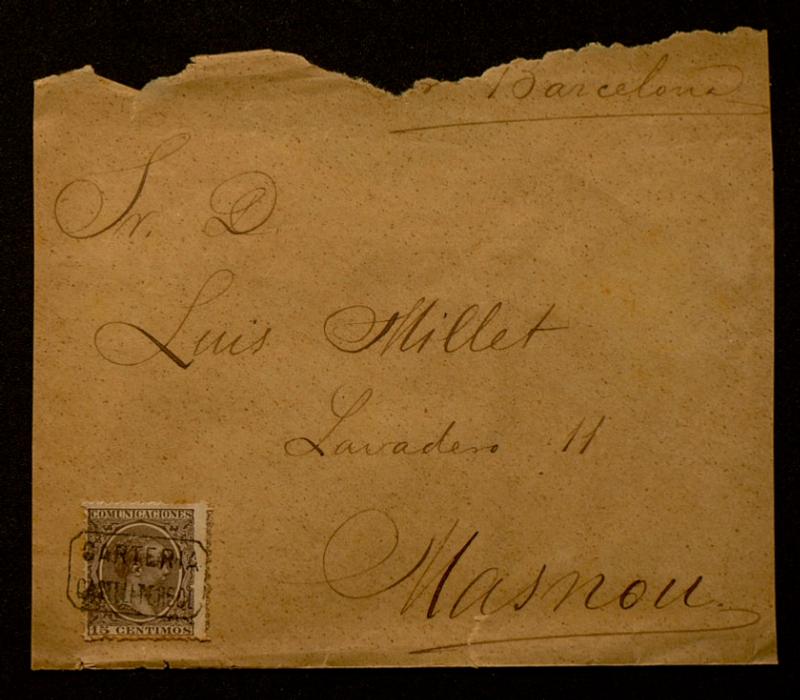 Barcelona
Sr. D.
Luis Millet
Lavadero 11
Masnou.
COMUNICACIONES
CARTERIA
15 CENTIMOS